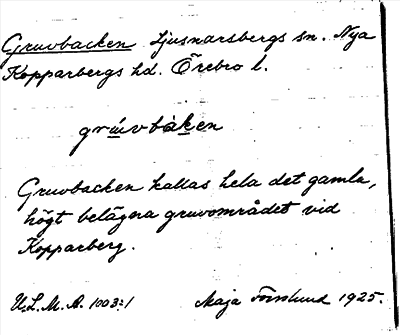 Gruvbacken Ljusnarsbergs sn. Nya
Kopparbergs hd. Örebro l.
grúvbàken
Gruvbacken kallas hela det gamla,
högt belägna gruvområdet vid
Kopparberg.
U.L.M.A. 1003:1 Maja Forslund 1925.